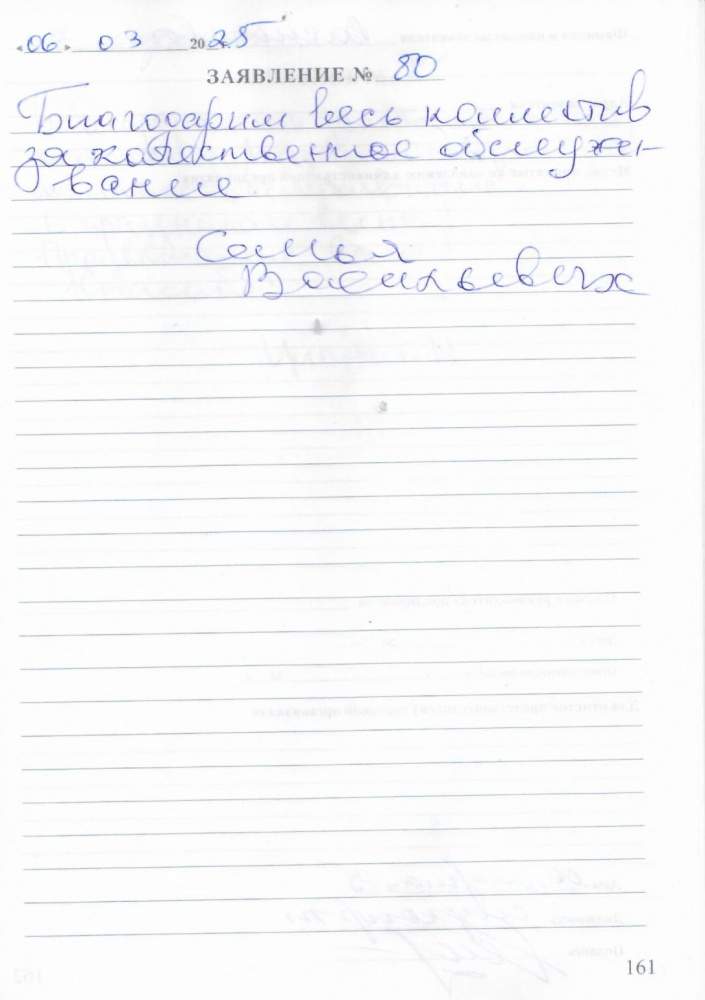 «06» 03 2025
ЗАЯВЛЕНИЕ № 80
Благодарим весь коллектив
за качественное обслужи-
вание.
Семья
Васильевых
161